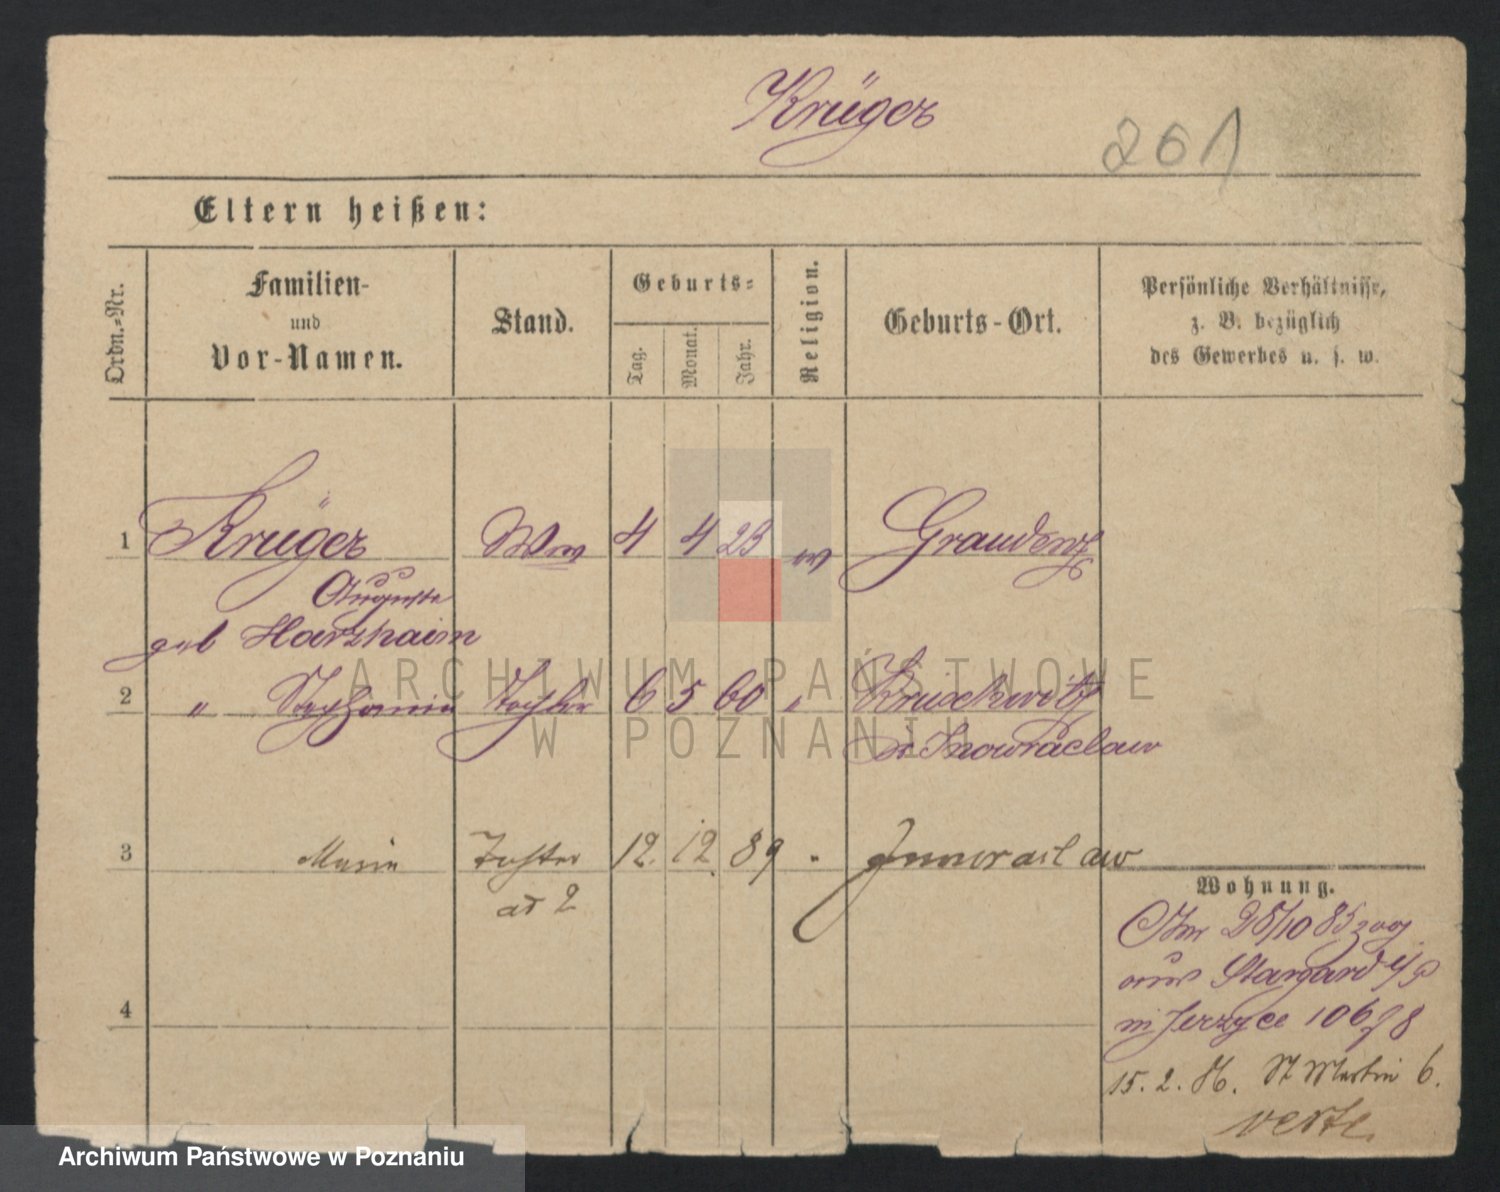 Krüger
201
Eltern heißen:
Ordn.-Nr.
Familien-
und
Vor-Namen.
Stand.
Geburts-
Tag.
Monat.
Jahr.
Religion.
Geburts-Ort.
Persönliche Verhältnisse,
z. B. bezüglich
des Gewerbes u. s. w.
1 Krüger Ww 4 4 23 ev Graudenz
Auguste
geb Harzhaim
2 " Stephanie Tochter 6 5 60 " Kruschwitz
Inowraclaw
3 Marie Tochter 12. 12 89 " Inowraclaw
ad 2
4
Wohnung.
Am 28/10 85 zog
aus Stargard i/P
n. Jerzyce 106 f 8
15. 2. 86. St Martin 6.
verte.
ARCHIWUM PAŃSTWOWE
W POZNANIU
Archiwum Państwowe w Poznaniu